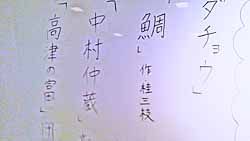 「ダチョウ」
「鯛」作・桂三枝
「中村仲蔵」
「高津の富」